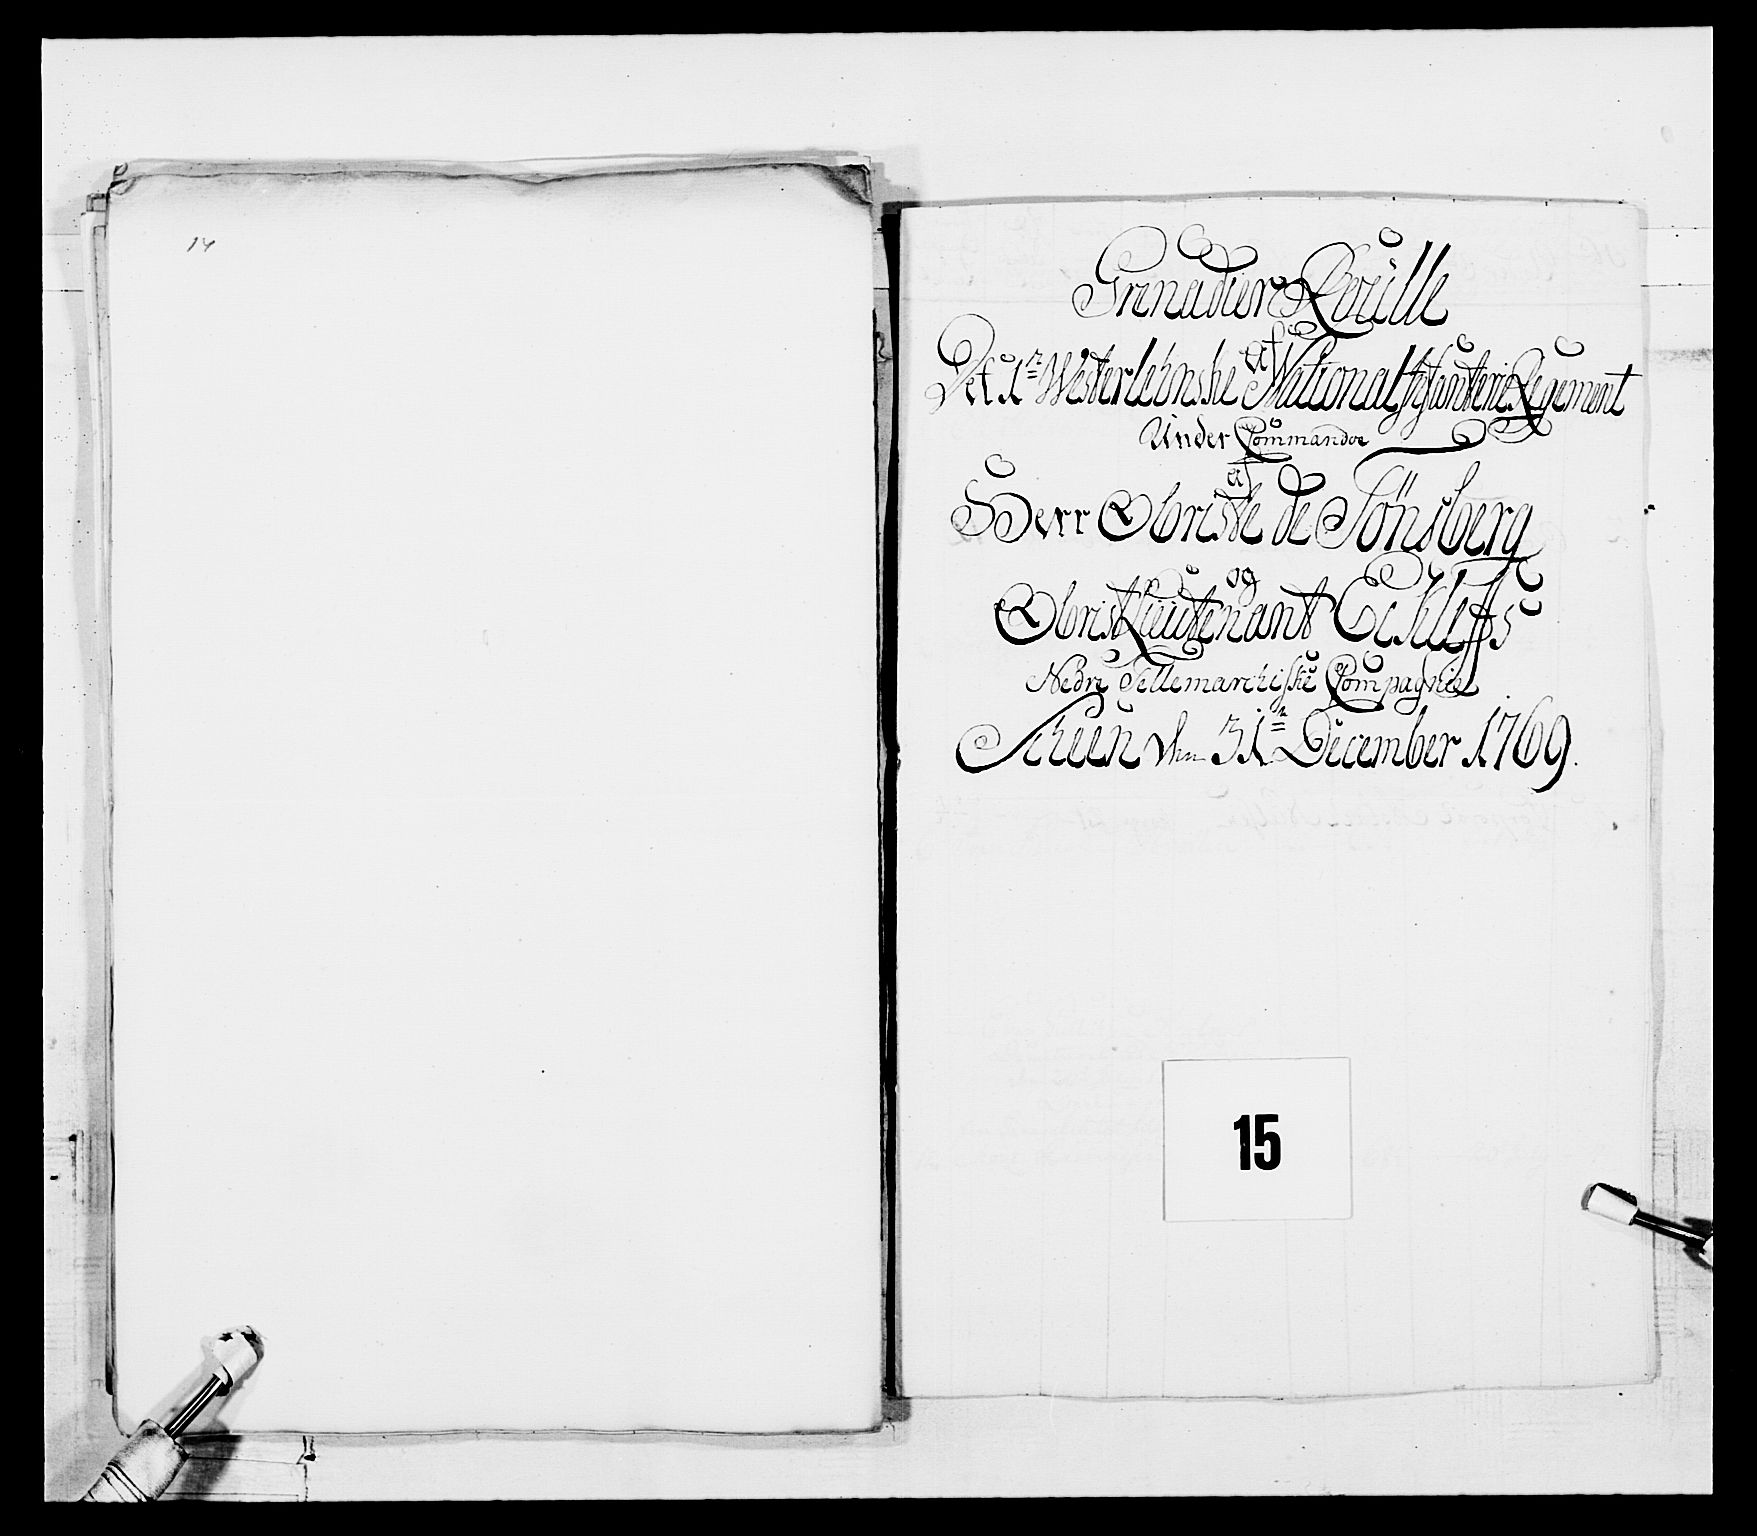 14
Grenadier Roulle
af
Det 1ᵗᵉ Westerlehnske National Infanterie Regement
Under Commando
af
Herr Obriste de Tönsberg
og
Obrist Lieutenant Eckleffs
Nedre Tellemarchiske Compagnie
Scheen den 31ᵗᵉ December 1769.
15